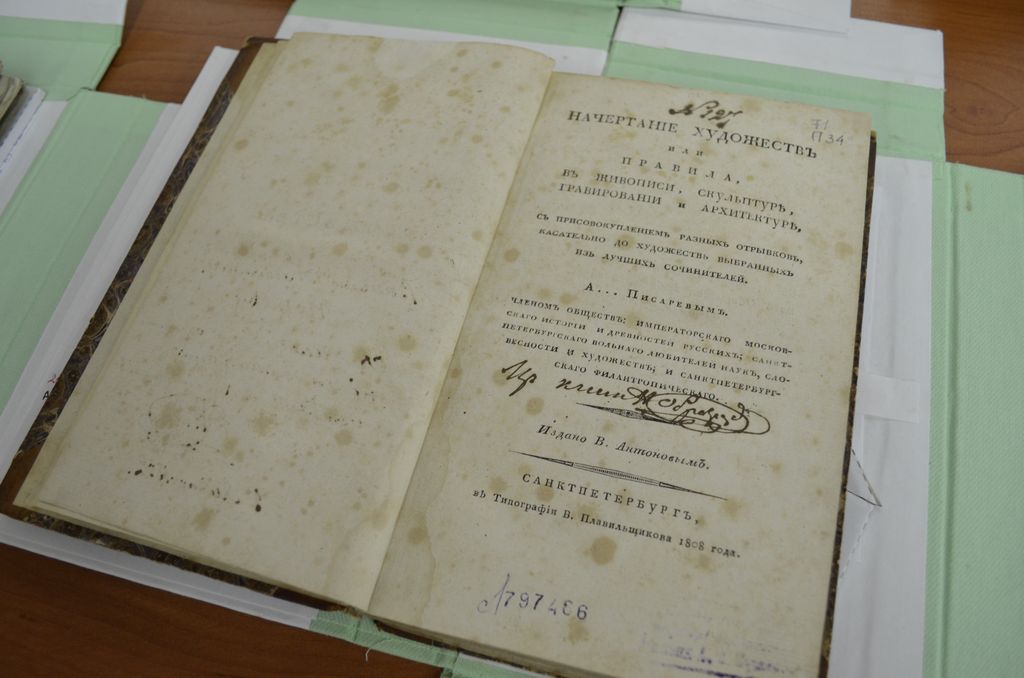 № 327
71
П34
НАЧЕРТАНІЕ ХУДОЖЕСТВЪ
ИЛИ
ПРАВИЛА,
ВЪ ЖИВОПИСИ, СКУЛЬПТУРѢ,
ГРАВИРОВАНІИ и АРХИТЕКТУРѢ,
СЪ ПРИСОВОКУПЛЕНІЕМЪ РАЗНЫХЪ ОТРЫВКОВЪ,
КАСАТЕЛЬНО ДО ХУДОЖЕСТВЪ ВЫБРАННЫХЪ
ИЗЪ ЛУЧШИХЪ СОЧИНИТЕЛЕЙ.
А... Писаревымъ.
ЧЛЕНОМЪ ОБЩЕСТВЪ: ИМПЕРАТОРСКАГО МОСКОВ-
СКАГО ИСТОРІИ И ДРЕВНОСТЕЙ РУССКИХЪ; САНКТ-
ПЕТЕРБУРГСКАГО ВОЛЬНАГО ЛЮБИТЕЛЕЙ НАУКЪ, СЛО-
ВЕСНОСТИ И ХУДОЖЕСТВЪ; И САНКТПЕТЕРБУРГ-
СКАГО ФИЛАНТРОПИЧЕСКАГО.
Изъ книгъ
Издано В. Антоновымъ.
САНКТПЕТЕРБУРГЪ,
въ Типографіи В. Плавильщикова 1808 года.
797466